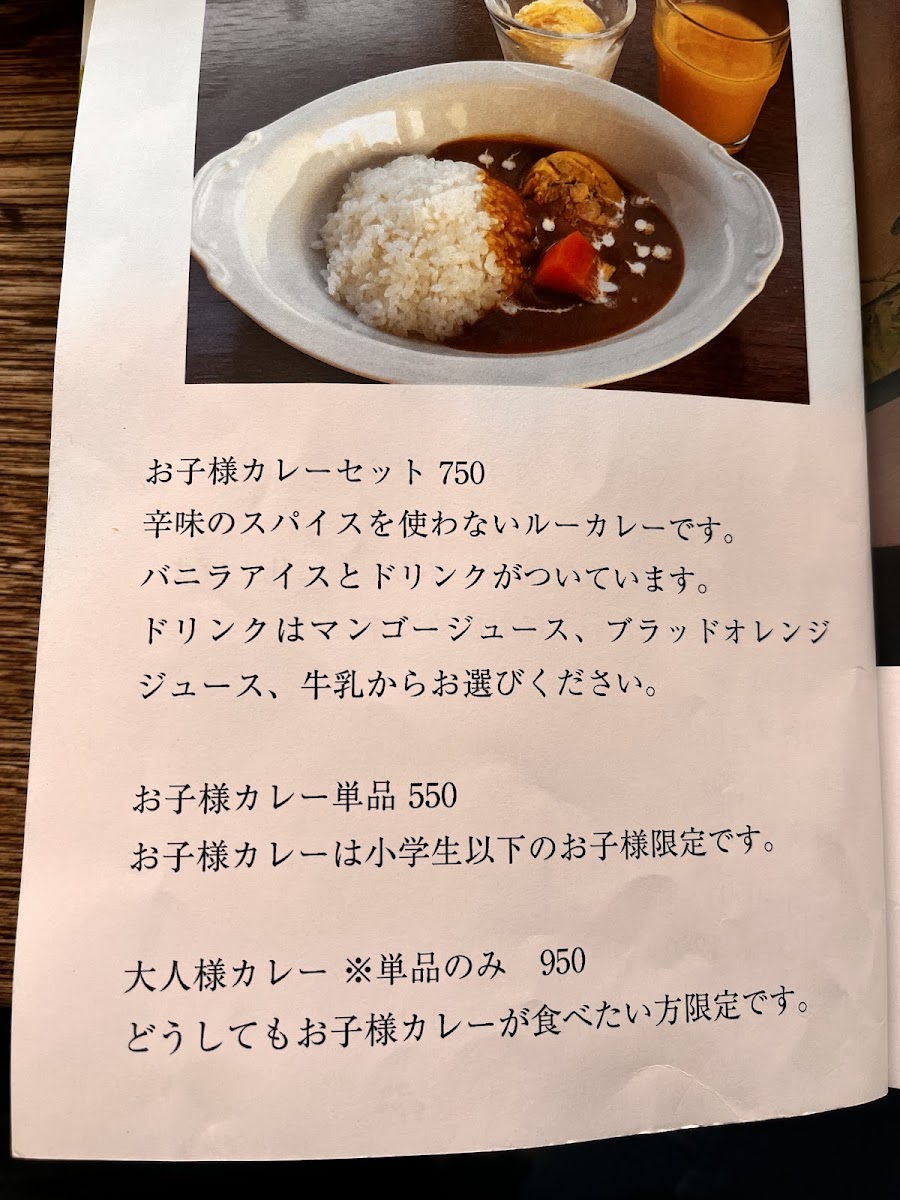 お子様カレーセット 750
辛味のスパイスを使わないルーカレーです。
バニラアイスとドリンクがついています。
ドリンクはマンゴージュース、ブラッドオレンジ
ジュース、牛乳からお選びください。
お子様カレー単品 550
お子様カレーは小学生以下のお子様限定です。
大人様カレー ※単品のみ　950
どうしてもお子様カレーが食べたい方限定です。